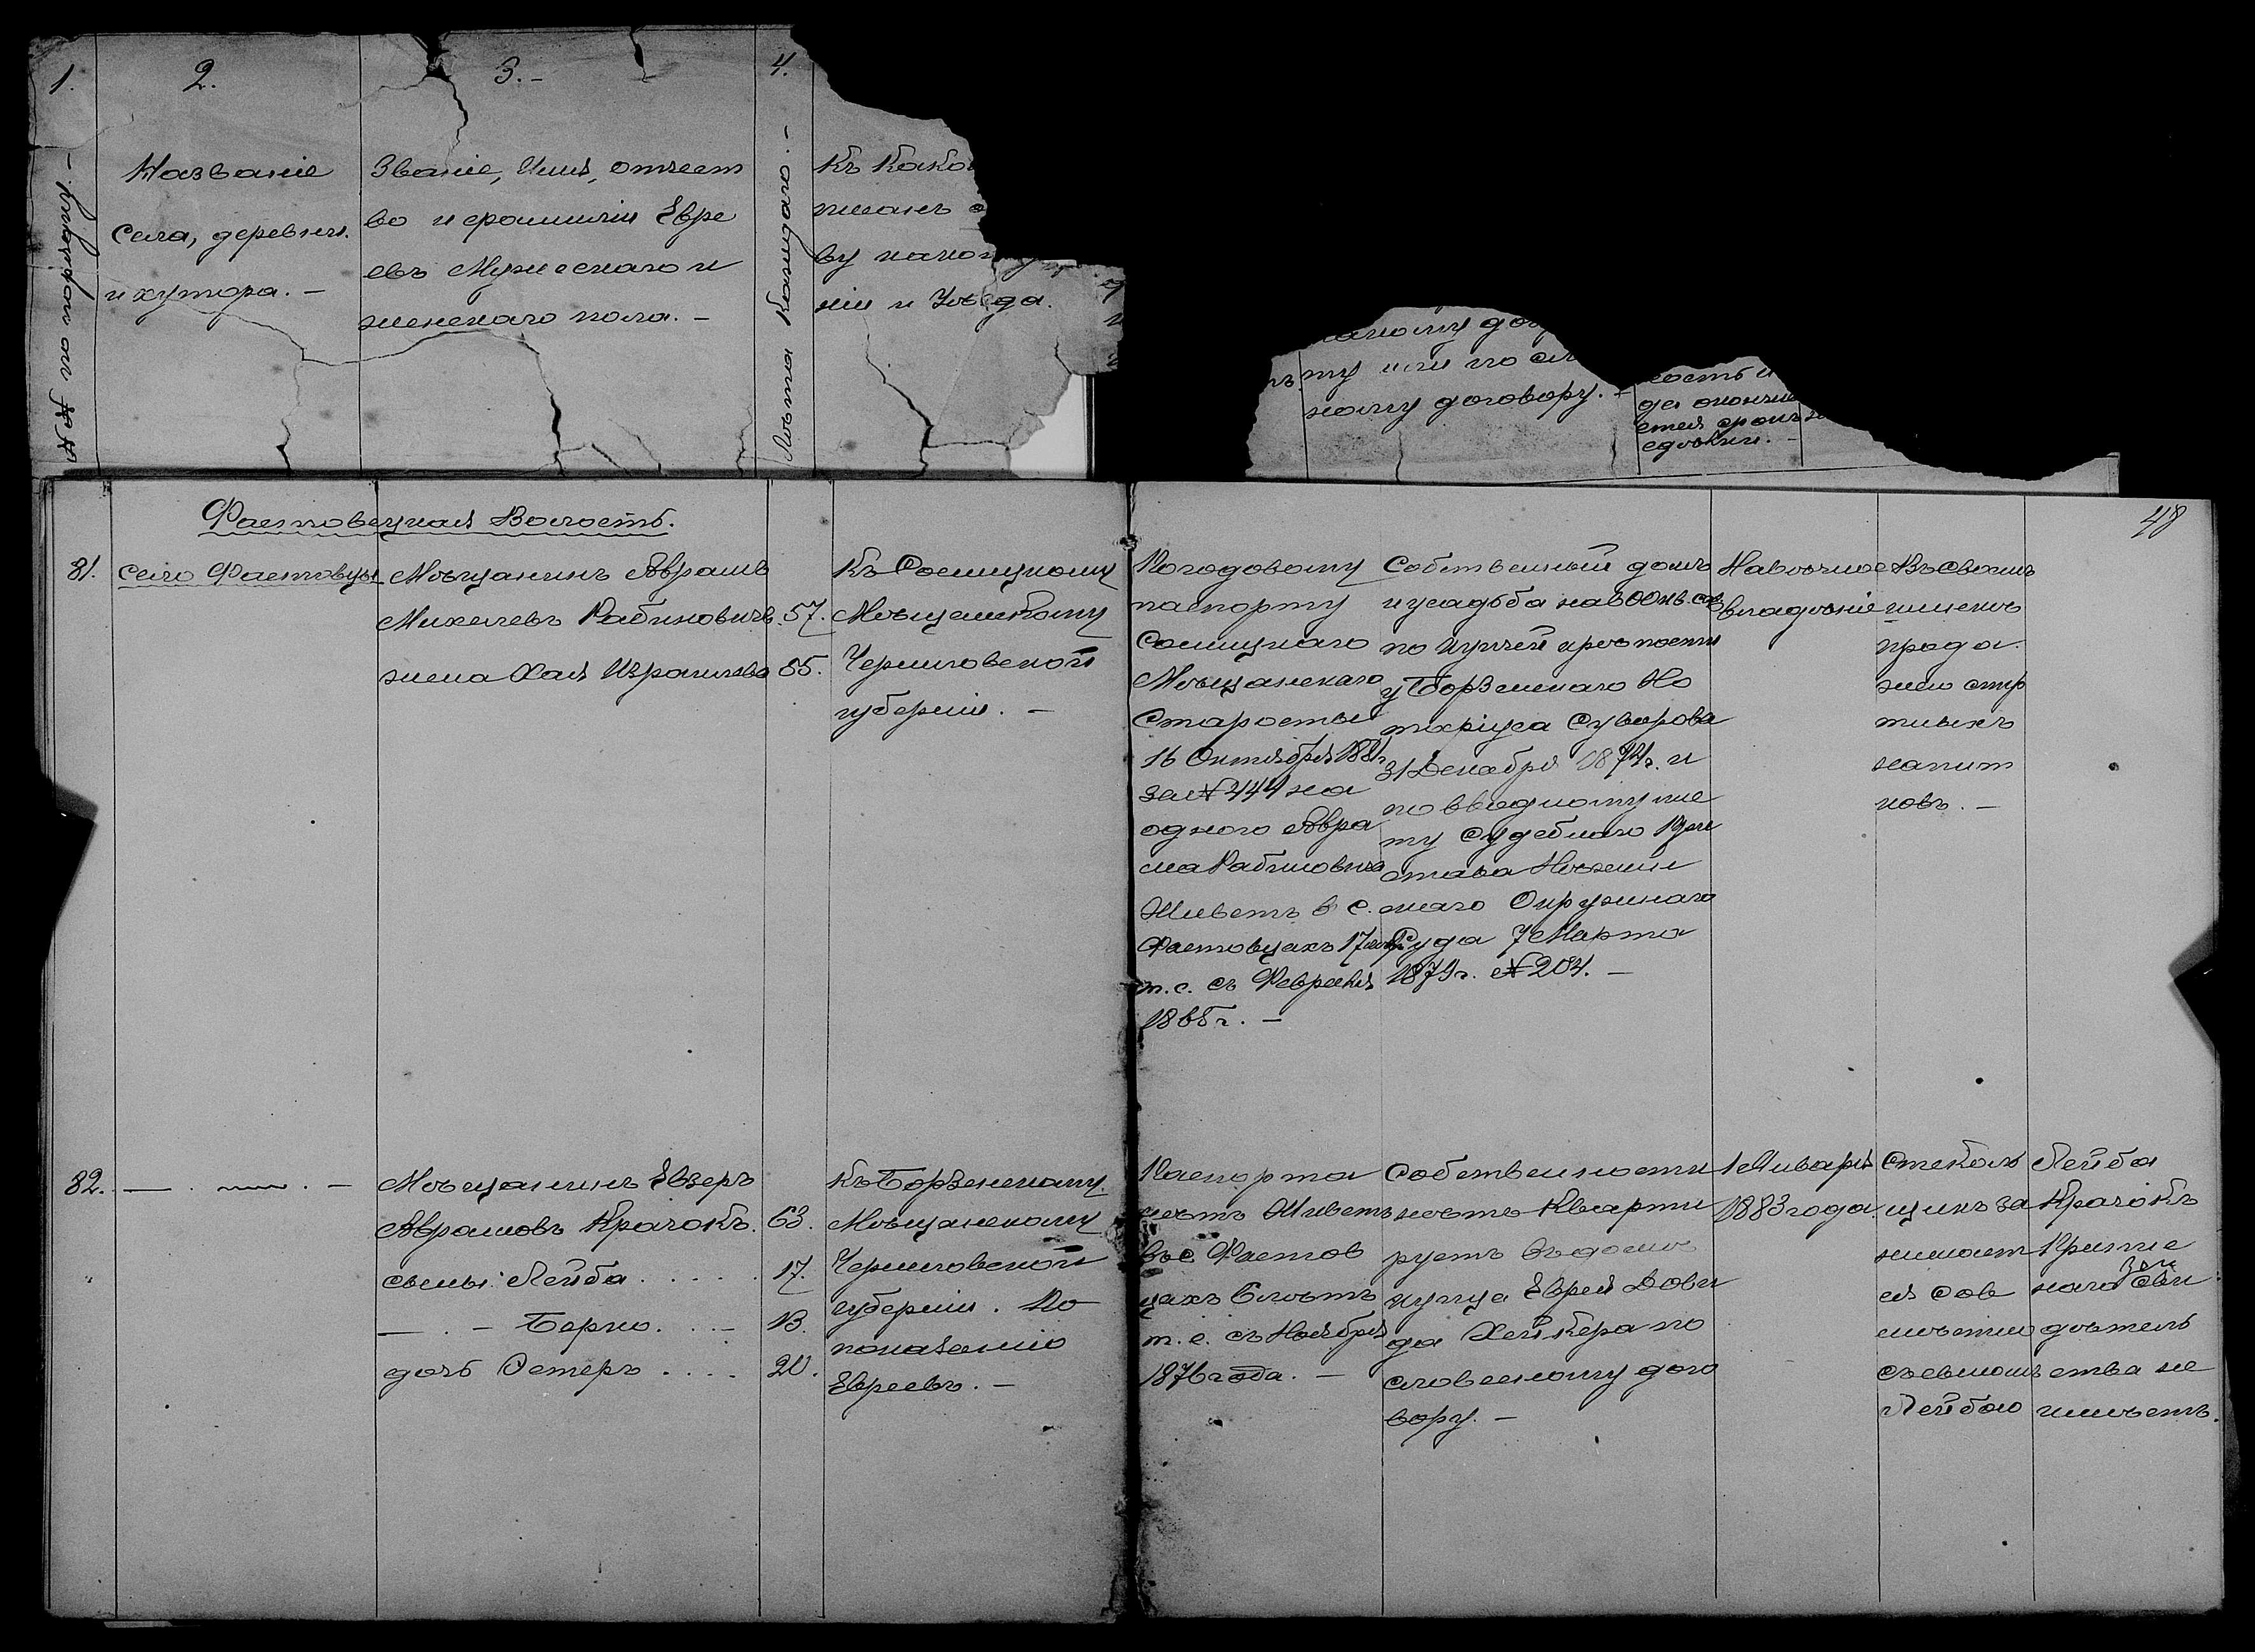 1.
2.
3.-
4.
№№ по порядку.-
Названіе
села, деревни
и хутора.-
Званіе, Имя, отчест
во и фамиліи Евре
евъ Мужескаго и
женскаго пола.-
Лѣта Каждаго.-
Къ како
писанъ
ву
ніи и Уѣзда.
ту или по сл
ному договору.-
ность и
да окончи
ется срокъ
сдѣлки.-
48
Фастовецкая Волость.
81.
село Фастовцы
Мѣщанинъ Абрамъ
Михелевъ Рабиновичъ
жена Хая Израилева
57.
55.
Къ Сосницкому
Мѣщанскому
Черниговской
губерніи.-
По годовому
паспорту
Сосницкаго
Мѣщанскаго
Старосты
16 Октября 1881г
за № 444 на
одного Абра
ма Рабиновича
Живетъ в с.
Фастовцахъ 17 лѣтъ
т.е. съ Февраля
1865г.-
Собственный домъ
и усадьба на 600 кв. саж
по купчей крѣпости
у Борзенскаго Но
таріуса Суворова
31 Декабря 1874г. и
по вводному ли
ту Судебнаго При
става Нѣжин
скаго Окружнаго
Суда 7 Марта
1879г. № 204.-
На вѣчное
владѣніе
Въ своемъ
имѣніи
прода
жею спир
тныхъ
напит
ковъ.-
82.
Мѣщанинъ Евзеръ
Абрамовъ Крачокъ.
сыны: Лейба
Берко.
дочь Эстеръ
63.
17.
13.
20.
Къ Борзенскому
Мѣщанскому
Черниговской
губерніи. По
показанію
Евреевъ.-
Паспорта
нѣтъ Живетъ
въ с Фастов
цахъ 6 лѣтъ
т.е. съ Ноября
1876 года.-
Собственности
нѣтъ Кварти
руетъ въ домѣ
купца Еврея Дови
да Хейкера по
словесному дого
вору.-
1 Января
1883 года.
Стеколь
щикъ за
нимает
ся сов
мѣстно
съ сыномъ
Лейбою
Лейба
Крачокъ
Припис
наго Сви
дѣтель
ства не
имѣетъ.